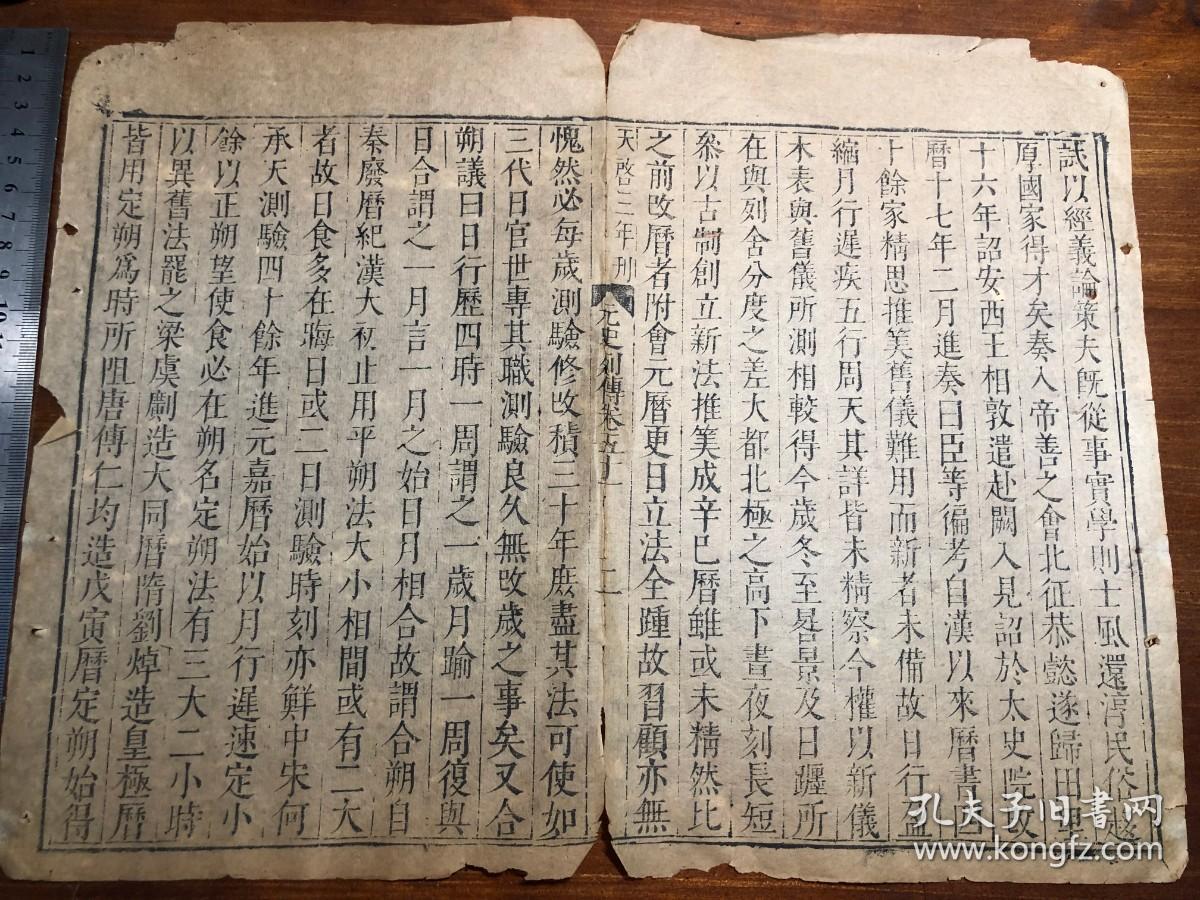 試以經義論策夫既從事實學則士風還淳民俗趨
厚國家得才矣奏入帝善之會北征恭懿遂歸田里
十六年詔安西王相敦遣赴闕入見詔於太史院改
曆十七年二月進奏曰臣等徧考自漢以來曆書四
十餘家精思推筭舊儀難用而新者未備故日行盈
縮月行遲疾五行周天其詳皆未精察今權以新儀
木表與舊儀所測相較得今歲冬至晷景及日躔所
在與列舍分度之差大都北極之高下晝夜刻長短
叅以古制創立新法推筭成辛巳曆雖或未精然比
之前改曆者附會元曆更日立法全踵故習顧亦無
天啓三年刊
元史列傳卷五十一
二
愧然必每歲測驗修改積三十年庶盡其法可使如
三代日官世專其職測驗良久無改歲之事矣又合
朔議曰日行歷四時一周謂之一歲月踰一周復與
日合謂之一月言一月之始日月相合故謂合朔自
秦廢曆紀漢大初止用平朔法大小相間或有二大
者故日食多在晦日或二日測驗時刻亦鮮中宋何
承天測驗四十餘年進元嘉曆始以月行遲速定小
餘以正朔望使食必在朔名定朔法有三大二小時
以異舊法罷之梁虞劇造大同曆隋劉焯造皇極曆
皆用定朔爲時所阻唐傅仁均造戊寅曆定朔始得
孔夫子旧書网
www.kongfz.com